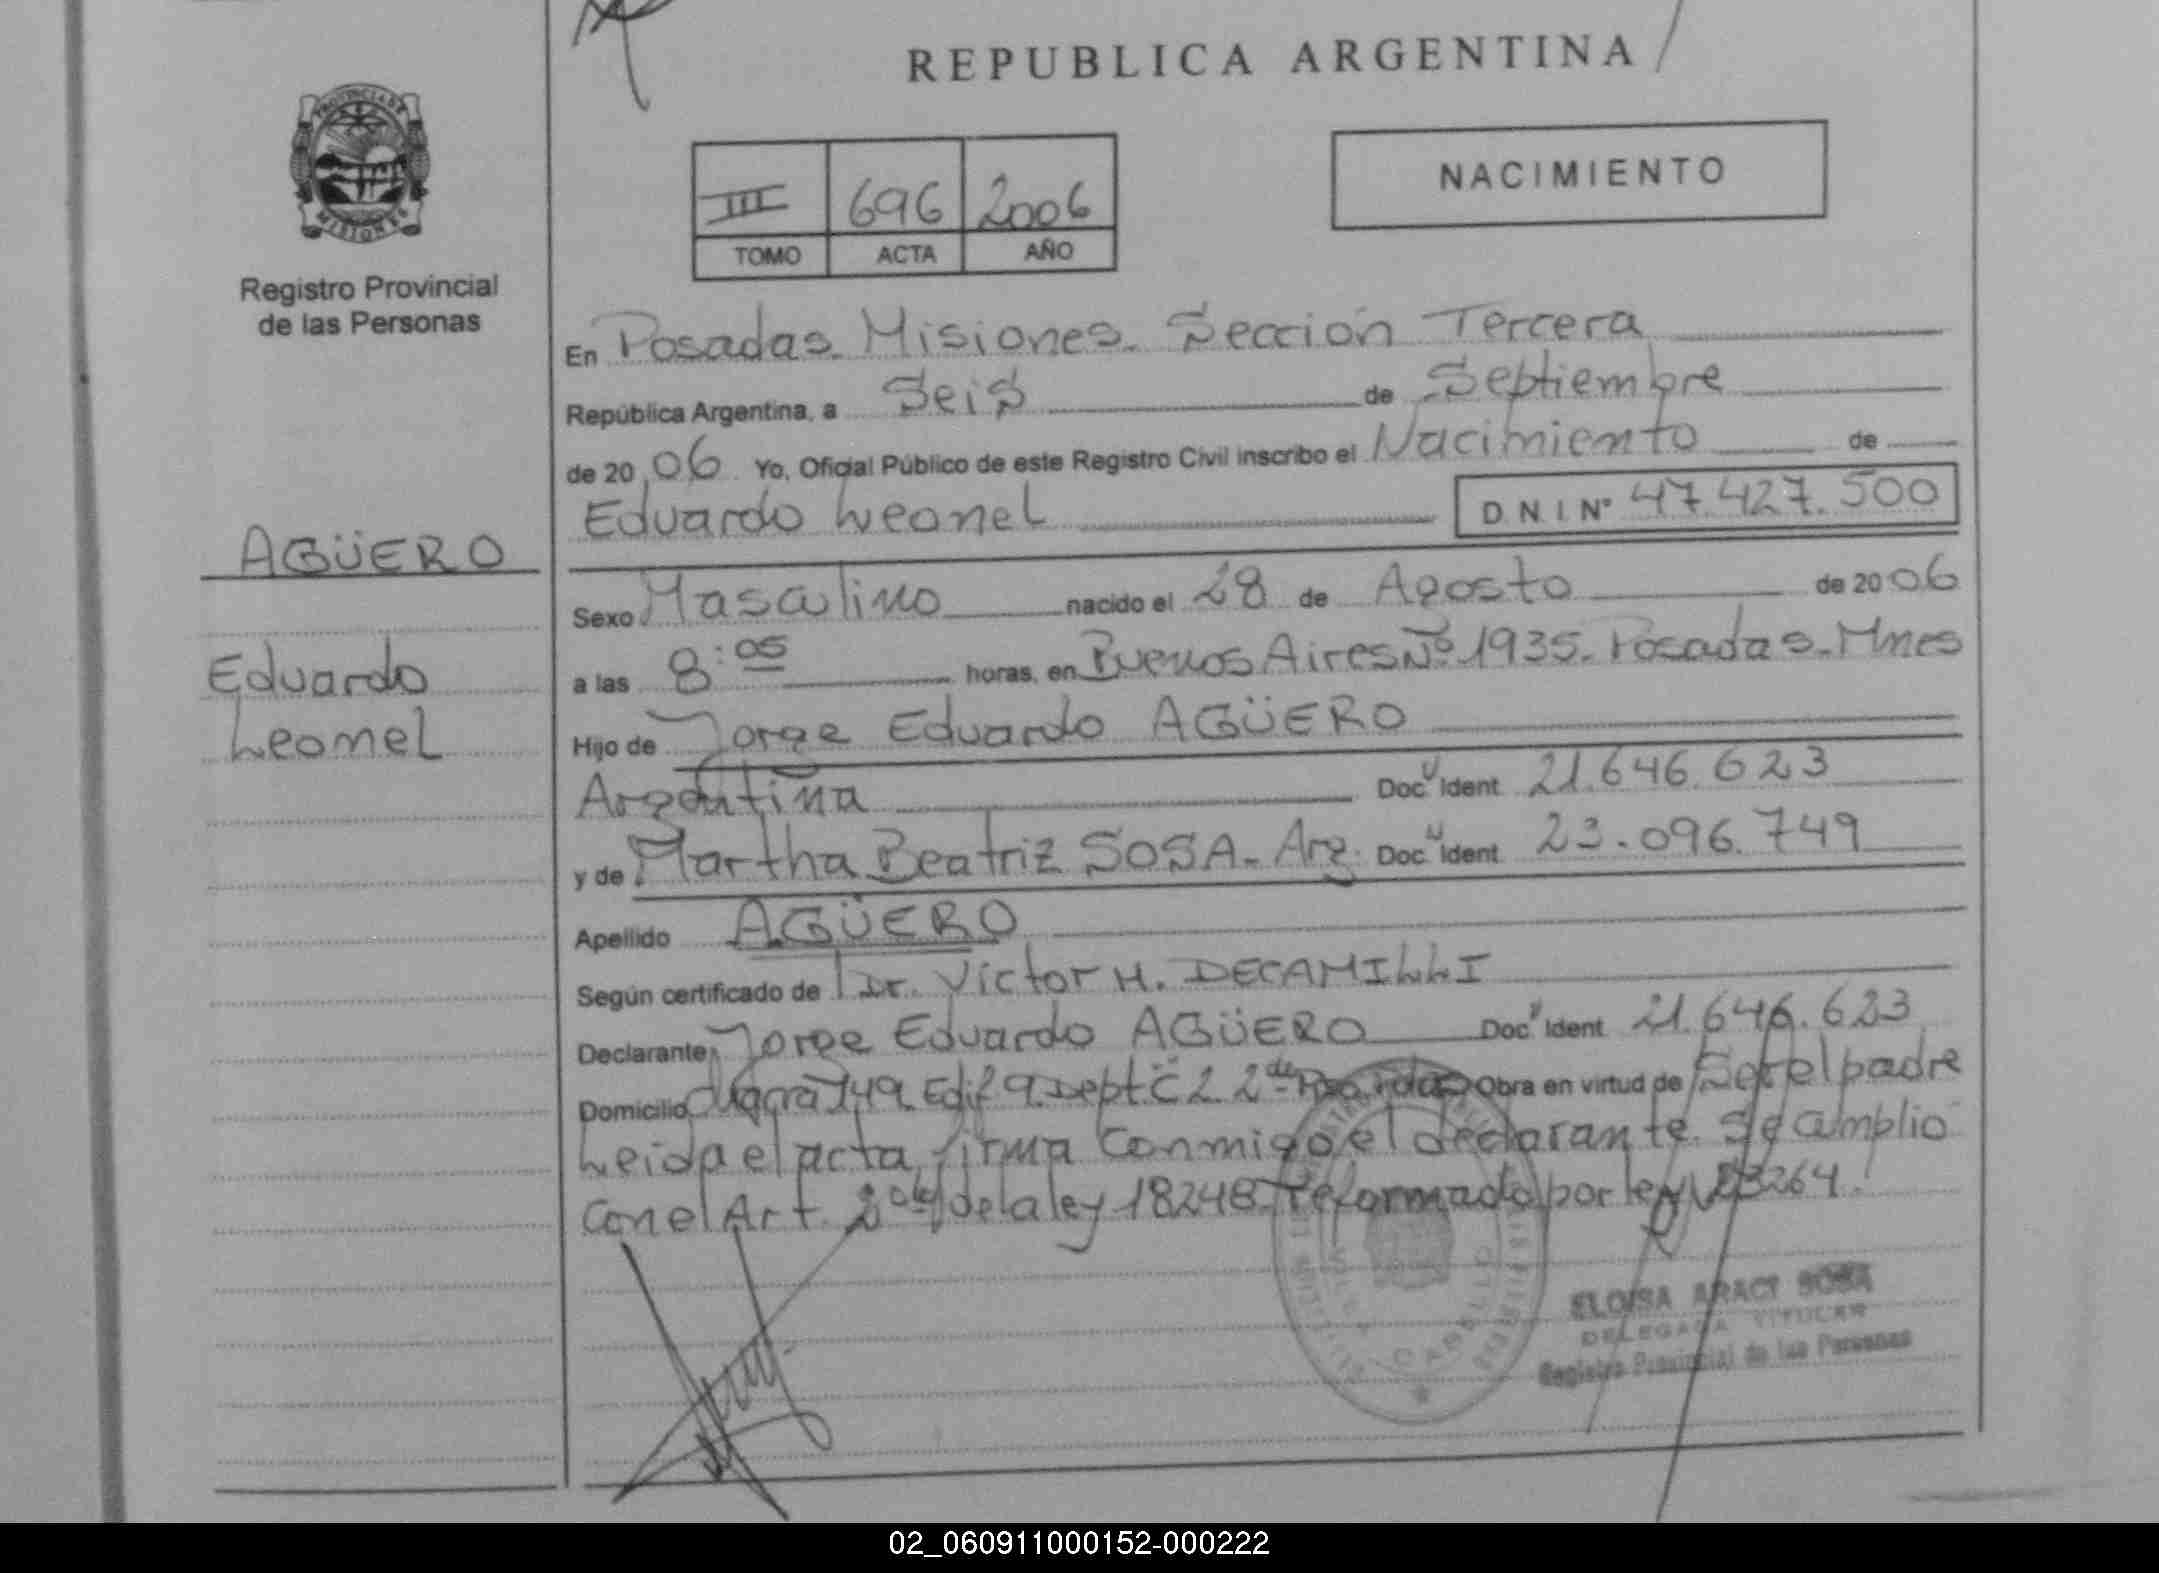 REPUBLICA ARGENTINA
PROVINCIA DE
MISIONES
Registro Provincial
de las Personas
NACIMIENTO
III 696 2006
TOMO ACTA AÑO
En Posadas. Misiones. Sección Tercera
República Argentina, a Seis de Septiembre
de 20 06 Yo, Oficial Público de este Registro Civil inscribo el Nacimiento de
Eduardo Leonel D N I Nº 47.427.500
AGÜERO
Eduardo
Leonel
Sexo Masculino nacido el 28 de Agosto de 20 06
a las 8:05 horas, en Buenos Aires Nº 1935. Posadas. Mnes
Hijo de Jorge Eduardo AGÜERO
Argentina Doc Ident 21.646.623
y de Martha Beatriz SOSA. Arg. Doc Ident 23.096.749
Apellido AGÜERO
Según certificado de Dr. Victor H. DECAMILLI
Declarante Jorge Eduardo AGÜERO Doc Ident 21.646.623
Domicilio 149 Edif 9. Dept. C 2 2 Obra en virtud de Ser el padre
Leida el acta, firma conmigo el declarante. Se amplio
Con el Art. 2 de la ley 18248 reformado por ley 23264.
ELOISA ARACI SOSA
DELEGADA TITULAR
Registro Provincial de las Personas
02_060911000152-000222